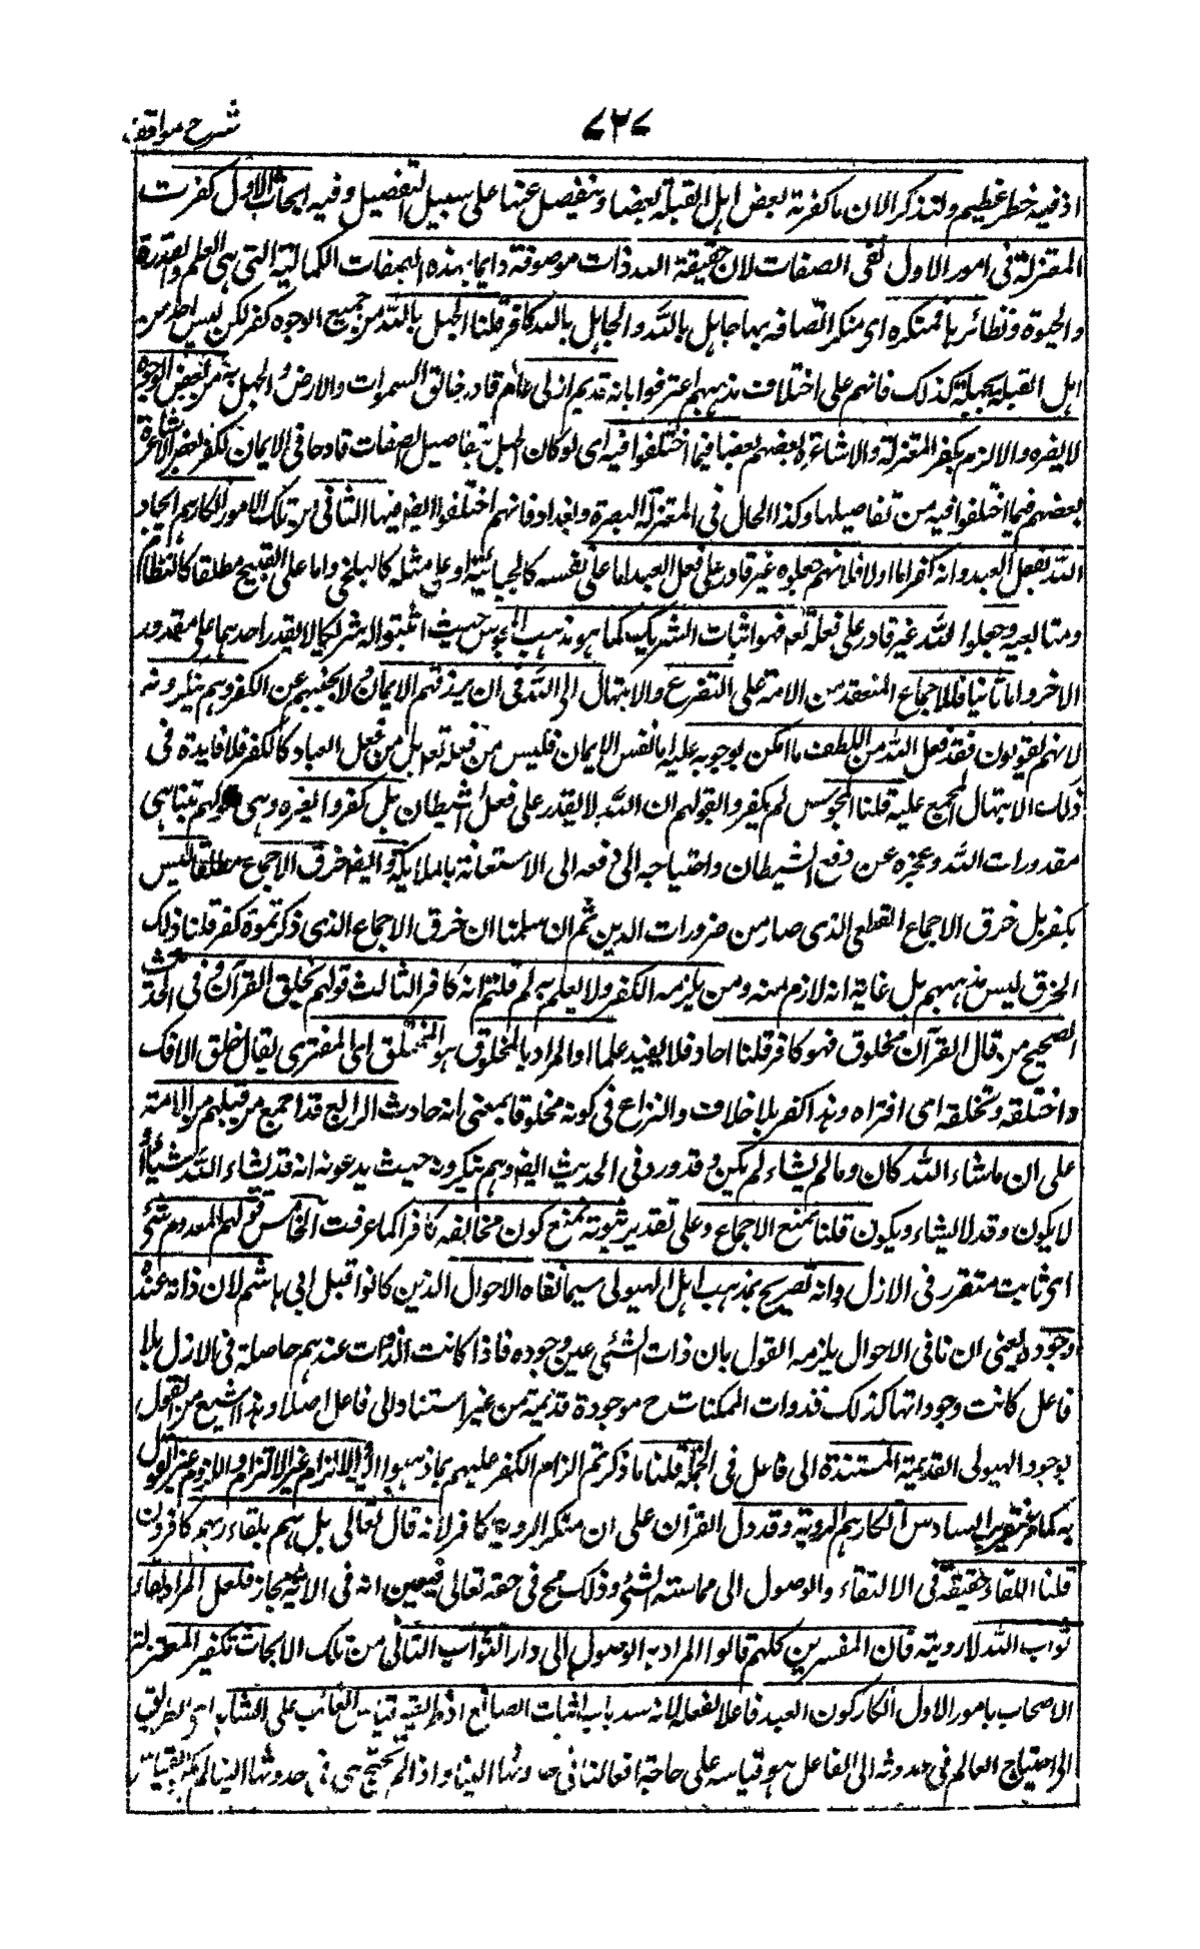 شرح مواقف
٧٢٧
اذ فيه خطر عظيم ولنذكر الان ما كفر به بعض اهل القبلة بعضا ونتفصيل عنها على سبيل التفصيل وفيه ابحاث الاول كفرت
المعتزلة فى امور الاول نفى الصفات لان حقيقة الله ذات موصوفة دايما بهذه الصفات الكمالية التى هى العلم والقدرة
والحيوة ونظائرها فمنكره اى منكر اتصافه بها جاهل بالله والجاهل بالله كافر قلنا الجهل بالله من جميع الوجوه كفر لكن ليس احد من
اهل القبلة يجهله كذلك فانهم على اختلاف مذهبهم اعترفوا بانه قديم ازلى عالم قادر خالق السموات والارض والجهل به من بعض الوجوه
لا يضره والا لزم يكفر المعتزلة والاشاعرة بعضهم بعضا فيما اختلفوا فيه اى لو كان الجهل بتفاصيل الصفات قادحا فى الايمان لكفر بعض الاشاعرة
بعضهم فيما اختلفوا فيه من تفاصيلها وكذا الحال فى المعتزلة البصرة وبغداد فانهم اختلفوا ايضا فيها الثانى من تلك الامور انكارهم ايجاد
الله لفعل العبد وانه كفر اما اولا فلانهم جعلوه غير قادر على فعل العبد اما على نفسه كالجبائية او على مثله كالبلخى واما على القبيح مطلقا كالنظام
ومتابعيه وجعلوا الله غير قادر على فعله تعم فهو اثبات الشريك كما هو مذهب المجوس حيث اثبتوا له شريكا لا يقدر احدهما على مقدور
الاخر واما ثانيا فللاجماع المنعقد من الامة على التضرع والابتهال الى الله فى ان يرزقهم الايمان ولا يجنبهم عن الكفر وهم ينكرونه
لانهم يقولون فقد فعل الله من اللطف ما امكن لوجوبه عليه اما نفس الايمان فليس من فعله تعم بل من فعل العباد كالكفر فلا فايدة فى
ذلك الابتهال المجمع عليه قلنا المجوس لم يكفروا لقولهم ان الله لا يقدر على فعل الشيطان بل كفروا بغيره وهى قولهم بتناهى
مقدورات الله وعجزه عن دفع الشيطان واحتياجه الى دفعه الى الاستعانة بالملايكة وايضا خرق الاجماع مطلقا ليس
بكفر بل خرق الاجماع القطعى الذى صار من ضرورات الدين ثم ان سلمنا ان خرق الاجماع الذى ذكرتموه كفر قلنا ذلك
الخرق ليس مذهبهم بل غاية انه لازم منه ومن يلزمه الكفر ولا يعلم به لم قلتم انه كافر الثالث قولهم بخلق القرآن وفى الحديث
الصحيح من قال القرآن مخلوق فهو كافر قلنا احاد فلا يفيد علما او المراد بالمخلوق هو المختلق اى المفترى يقال خلق الافك
واختلقه وتخلقه اى افتراه وهذا كفر بلا خلاف والنزاع فى كونه مخلوقا بمعنى انه حادث الرابع قد اجمع من قبلهم من الامة
على ان ما شاء الله كان وما لم يشاء لم يكن وقد ورد فى الحديث ايضا وهم ينكرونه حيث يدعون انه قد يشاء الله شيئا
لا يكون وقد لا يشاء ويكون قلنا نمنع الاجماع وعلى تقدير ثبوته نمنع كون مخالفه كافرا كما عرفت الخامس قولهم المعدوم شئى
اى ثابت متقرر فى الازل وانه تصريح بمذهب اهل الهيولى سيما نفاه الاحوال الذين كانوا قبل ابى هاشم لان ذاته عنده
وجوده يعنى ان نافى الاحوال يلزمه القول بان ذات الشئى عين وجوده فاذا كانت الذوات عندهم حاصلة فى الازل بلا
فاعل كانت وجوداتها كذلك فذوات الممكنات ح موجودة قديمة من غير استناد الى فاعل اصلا وهذا اشنع من القول
بوجود الهيولى القديمة المستندة الى فاعل فى الجملة قلنا ما ذكرتم الزام الكفر عليهم بما ذهبوا اليه والالزام غير الالتزام واللزوم غير القول
به كما مر تقريره السادس انكارهم الروية وقد دل القرآن على ان منكر الروية كافر لانه قال تعالى بل هم بلقاء ربهم كافرون
قلنا اللقاء حقيقة فى الالتقاء والوصول الى مماسته الشئى وذلك مح فى حقه تعالى فيعين انه فى الاية مجاز فلعل المراد لقاء
ثواب الله لا رويته فان المفسرين كلهم قالوا المراد به الوصول الى دار الثواب الثانى من تلك الابحاث تكفير المعتزلة
الاصحاب بامور الاول انكار كون العبد فاعلا لفعله لانه سد باب اثبات الصانع اذ طريقه قياس الغائب على الشاهد اى لطريق
الى احتياج العالم فى حدوثه الى الفاعل هو قياسه على حاجة افعالنا فى حدوثها الينا واذا لم تحتج هى فى حدوثها الينا لم يمكن القياس